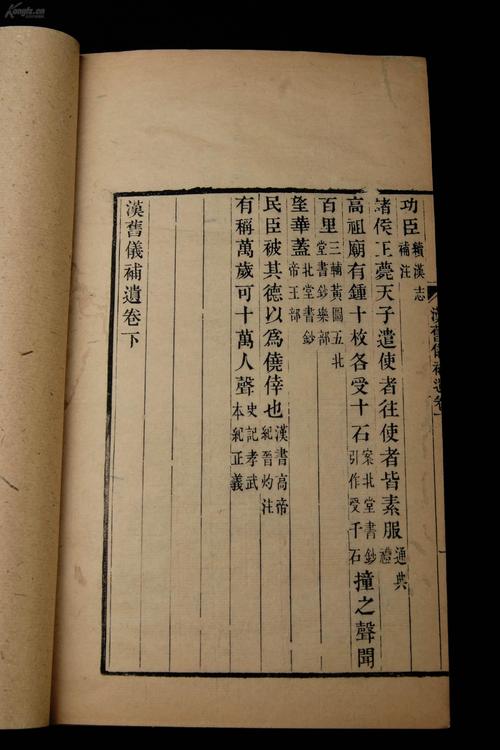 Kongfz.cn
漢舊儀補遺卷
功臣續漢志補注
諸侯王薨天子遣使者往使者皆素服通典禮
高祖廟有鍾十枚各受十石案北堂書鈔引作受千石撞之聲聞
百里三輔黃圖五北堂書鈔樂部
朢華蓋北堂書鈔帝王部
民臣被其德以爲僥倖也漢書高帝紀晉灼注
有稱萬歲可十萬人聲史記孝武本紀正義
漢舊儀補遺卷下